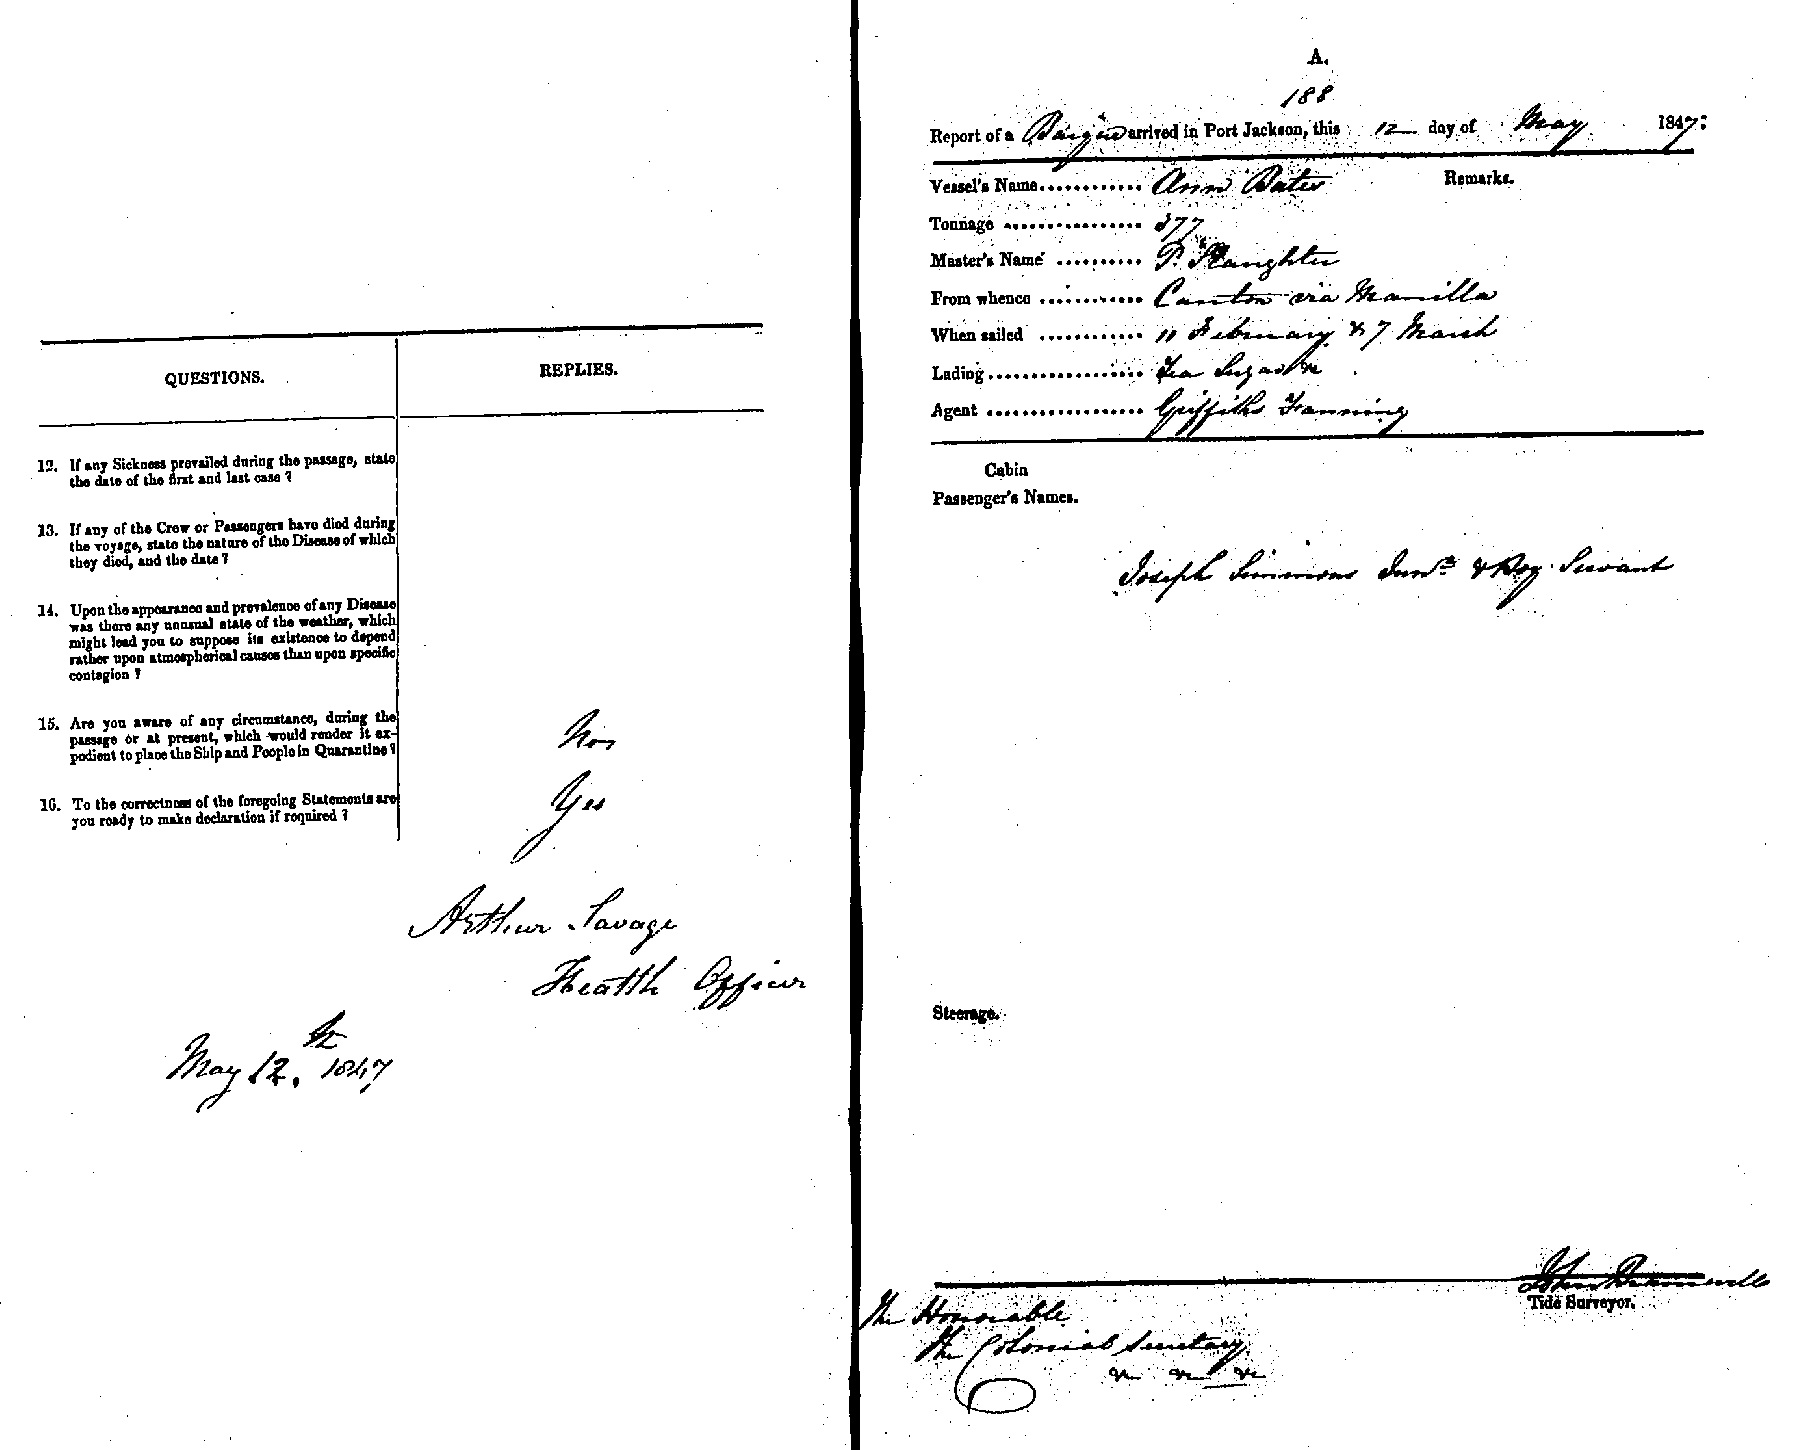 QUESTIONS.
REPLIES.
12. If any Sickness prevailed during the passage, state
the date of the first and last case ?
13. If any of the Crew or Passengers have died during
the voyage, state the nature of the Disease of which
they died, and the date ?
14. Upon the appearance and prevalence of any Disease
was there any unusual state of the weather, which
might lead you to suppose its existence to depend
rather upon atmospherical causes than upon specific
contagion ?
15. Are you aware of any circumstance, during the
passage or at present, which would render it ex-
pedient to place the Ship and People in Quarantine ?
No
16. To the correctness of the foregoing Statements are
you ready to make declaration if required ?
Yes
Arthur Savage
Health Officer
May 12th. 1847
A.
188
Report of a Barque arrived in Port Jackson, this 12 day of May 1847:
Vessel's Name............ Ann Bates
Remarks.
Tonnage ................ 377
Master's Name .......... P.
From whence ............ Canton via Manilla
When sailed ............ 11 February & 7 March
Lading.................. Tea Sugar &c
Agent .................. Griffiths Fanning
Cabin
Passenger's Names.
Joseph Simmons Junr. & Boy Servant
Steerage.
John
Tide Surveyor.
The Honorable
The Colonial Secretary
&c &c &c